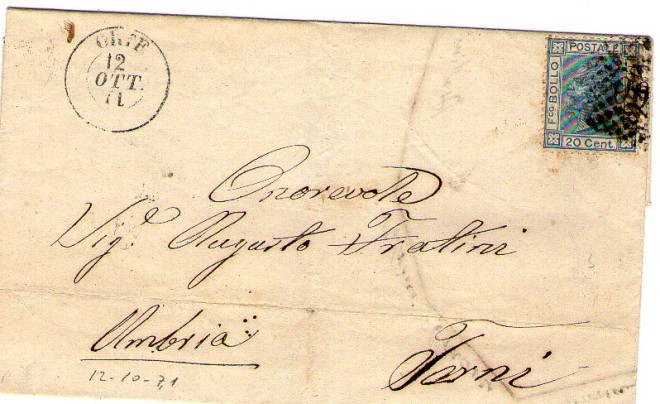 12
OTT.
71
POSTALE
Fco BOLLO
20 Cent.
Onorevole
Sigr. Augusto Fratini
Umbria
Terni
12-10-71